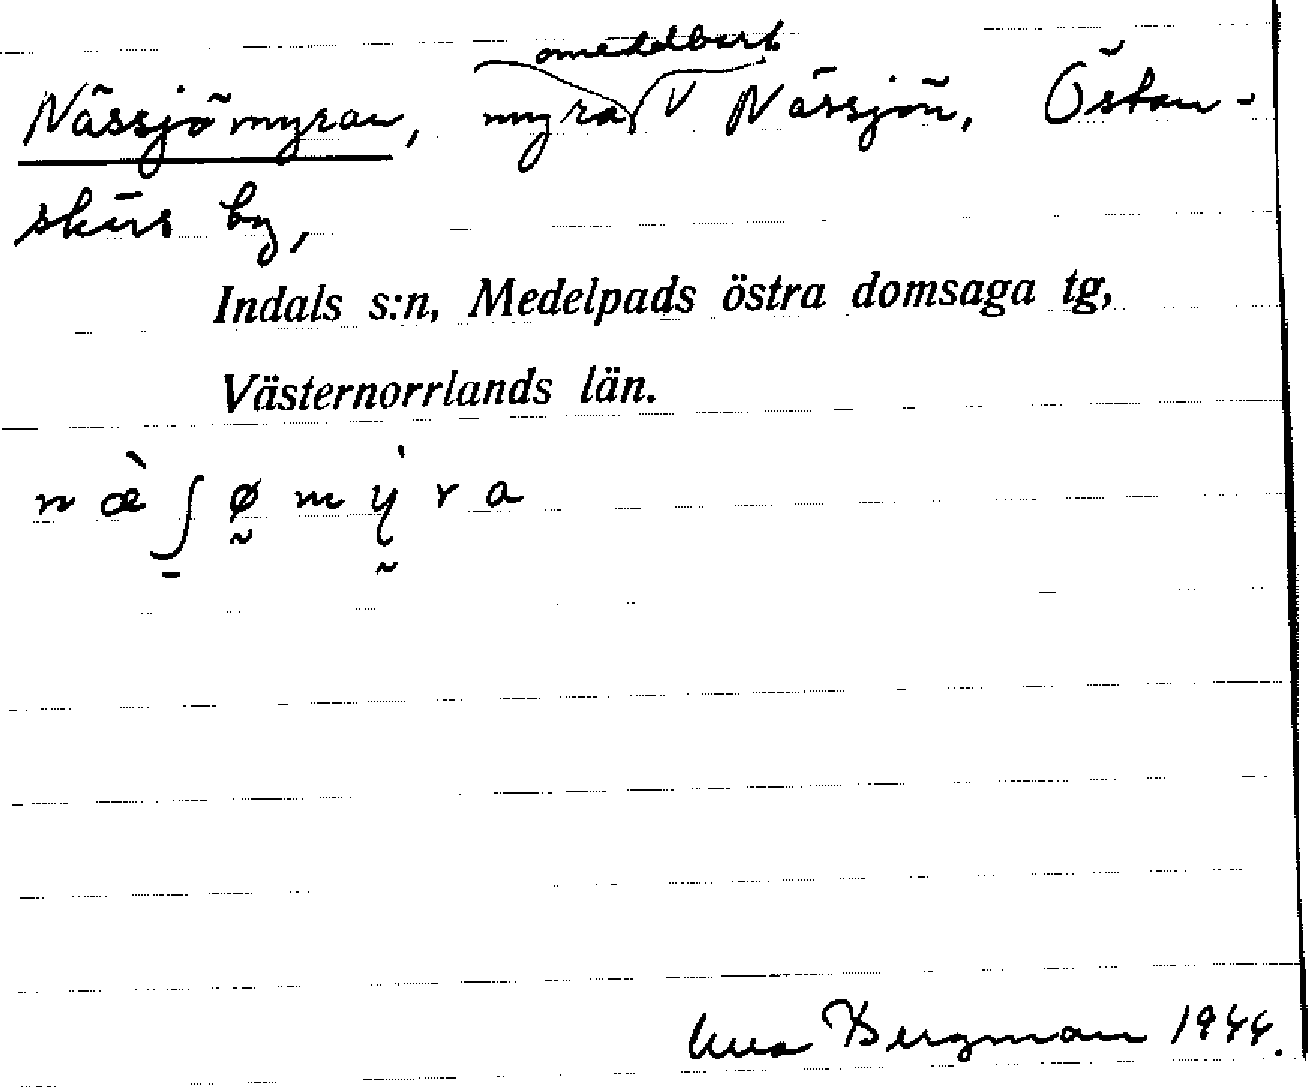 Nässjömyran, myra omedelbart V Nässjön, Östan-
skärs by,
Indals s:n, Medelpads östra domsaga tg,
Västernorrlands län.
n æ̀ ʃ̠ ø̰ m ý̰ r a
Bergman 1944.